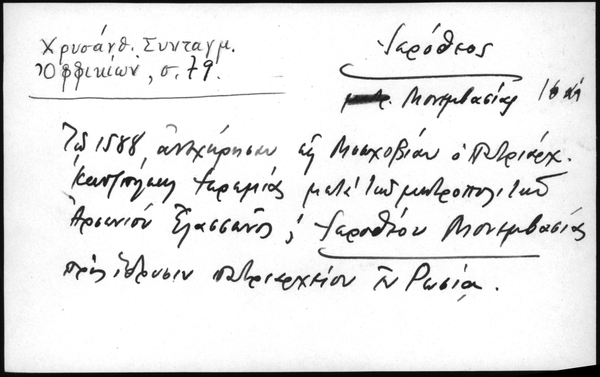 Χρυσάνθ. Συνταγμ.
Ὀφφικίων, σ. 79.
Ἱερόθεος
Μονεμβασίας
Τῷ 1588 ἀνεχώρησεν εἰς Μοσχοβίαν ὁ Πατριάρχ.
Κωνσ)πόλεως Ἱερεμίας μετὰ τοῦ μητροπολίτου
Ἀρσενίου Ἐλασσῶνος, & Ἱεροθέου Μονεμβασίας
πρὸς ἵδρυσιν πατριαρχείου ἐν Ρωσίᾳ.